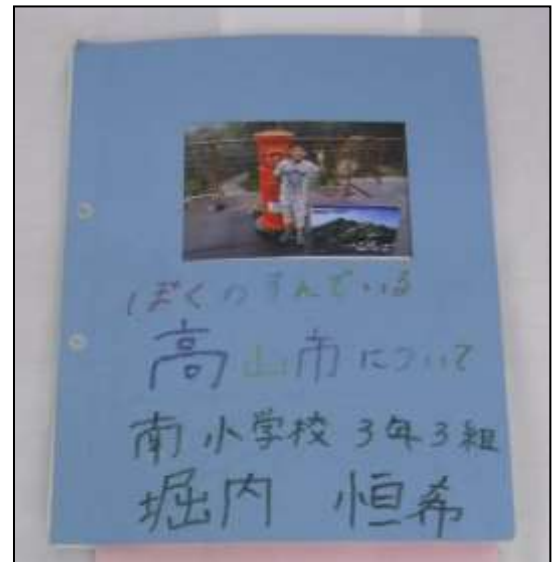 ぼくのすんでいる
高山市について
南小学校 3年3組
堀内 恒希